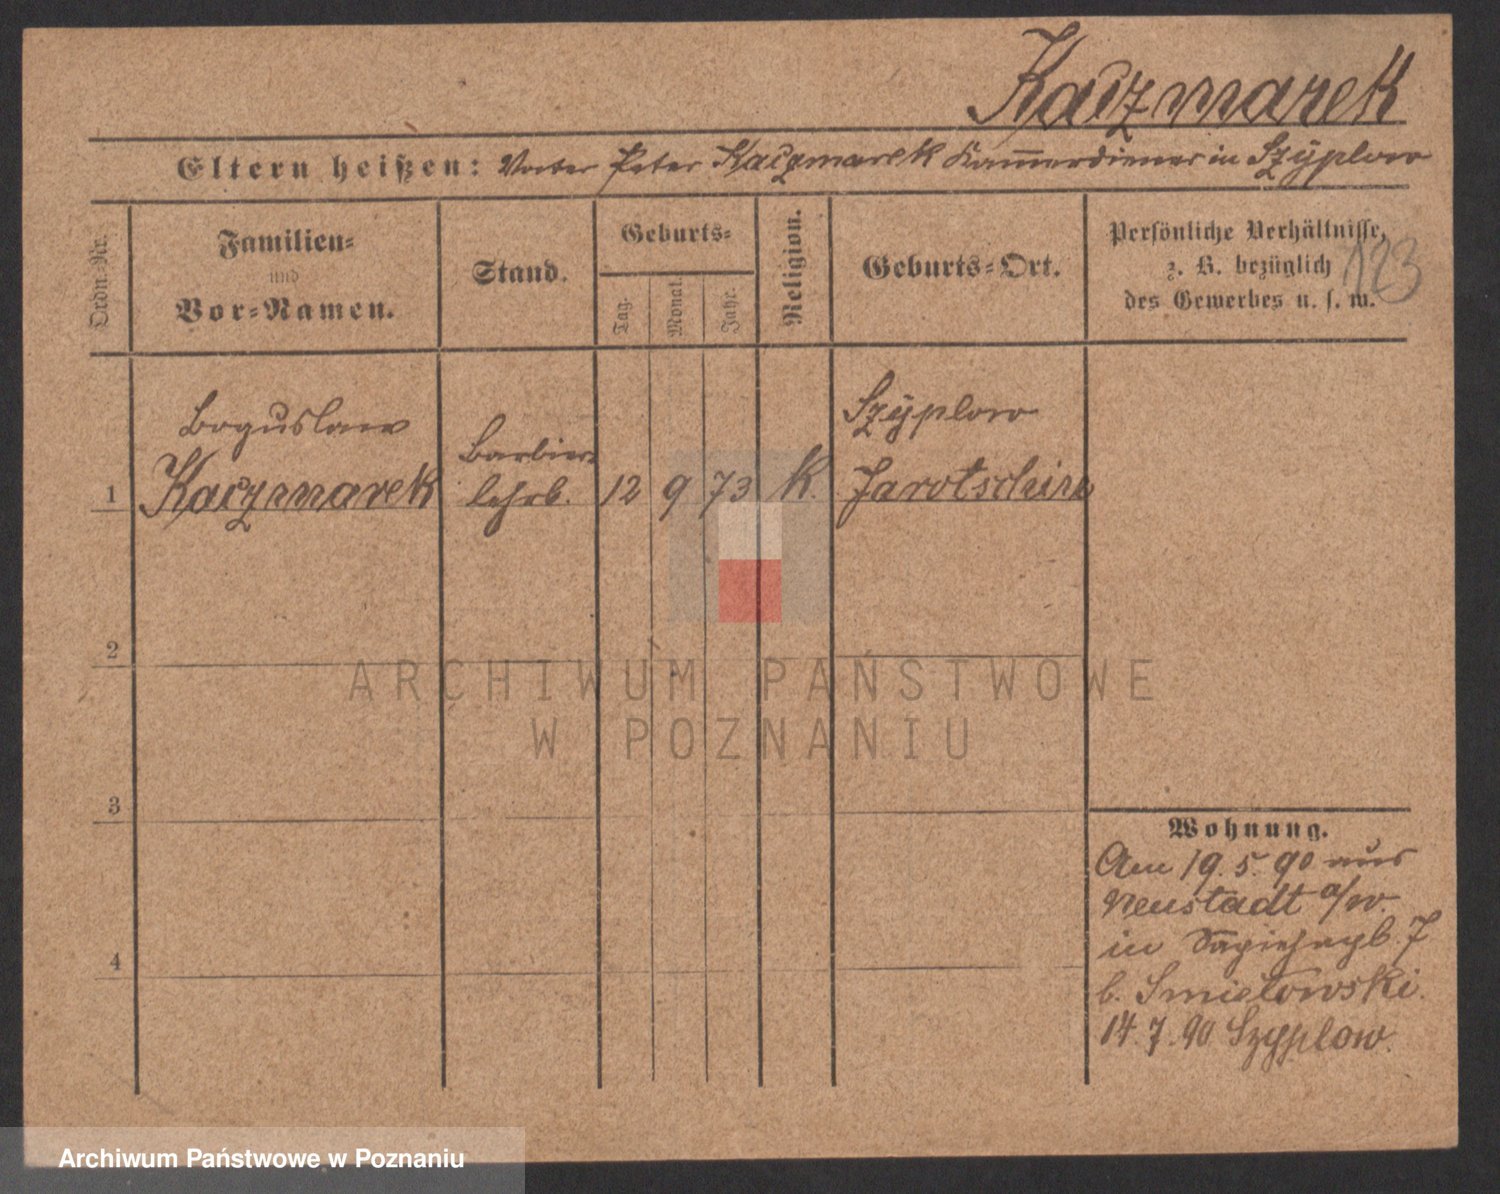 Kaczmarek
Eltern heißen: Vater Peter Kaczmarek Kammerdiener in Szyplow
Ordn.-Nr.
Familien-
und
Vor-Namen.
Stand.
Geburts-
Tag.
Monat.
Jahr.
Religion.
Geburts-Ort.
Persönliche Verhältnisse,
z. B. bezüglich
des Gewerbes u. s. w.
123
Boguslaw
Kaczmarek
Barbier
lehrl.
1
12 9 73 k.
Szyplow
Jarotschin
2
3
4
ARCHIWUM PAŃSTWOWE
W POZNANIU
Wohnung.
Am 19.5.90 aus
Neustadt a/W.
in 7
b. Smielowski.
14.7.90 Szyplow.
Archiwum Państwowe w Poznaniu